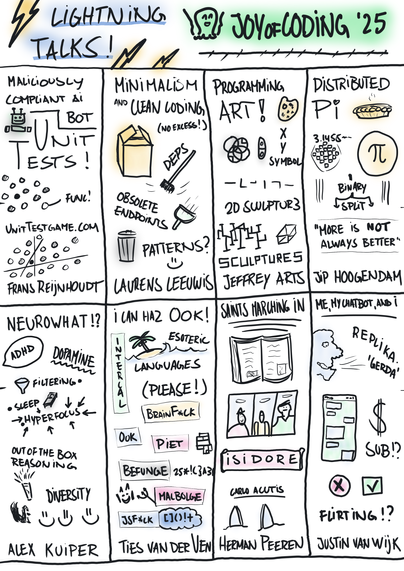 LIGHTNING
TALKS!
JOY OF CODING '25
MALICIOUSLY
COMPLIANT AI
BOT
UNIT
TESTS!
FUNC!
UNITTESTGAME.COM
FRANS REIJNHOUDT
MINIMALISM
AND CLEAN CODING
(NO EXCESS!)
DEPS
OBSOLETE
ENDPOINTS
PATTERNS?
LAURENS LEEUWIS
PROGRAMMING
ART!
X
Y
SYMBOL
2D SCULPTUR3
SCULPTURES
JEFFREY ARTS
DISTRIBUTED
Pi
3.1455--
π
BINARY
SPLIT
"MORE IS NOT
ALWAYS BETTER"
JIP HOOGENDAM
NEUROWHAT!?
ADHD
DOPAMINE
FILTERING
SLEEP
HYPERFOCUS
OUT OF THE BOX
REASONING
DIVERSITY
ALEX KUIPER
i CAN HAZ OOK!
INTERCAL
ESOTERIC
LANGUAGES
(PLEASE!)
BRAINF*CK
OOK
PIET
BEFUNGE
MALBOLGE
JSF*CK
[]()!+
TIES VAN DER VEN
SAINTS MARCHING IN
iSiDORE
CARLO ACUTIS
HERMAN PEEREN
ME, MY CHATBOT, AND i
REPLIKA.
'GERDA'
$
SUB!?
FLIRTING!?
JUSTIN VAN WIJK